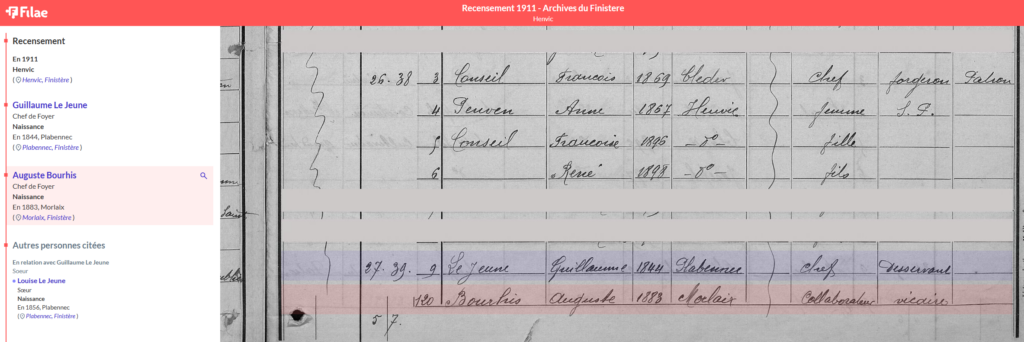 Filae
Recensement 1911 - Archives du Finistere
Henvic
Recensement
En 1911
Henvic
( Henvic, Finistère )
Guillaume Le Jeune
Chef de Foyer
Naissance
En 1844, Plabennec
( Plabennec, Finistère )
Auguste Bourhis
Chef de Foyer
Naissance
En 1883, Morlaix
( Morlaix, Finistère )
Autres personnes citées
En relation avec Guillaume Le Jeune
Sœur
Louise Le Jeune
Sœur
Naissance
En 1856, Plabennec
( Plabennec, Finistère )
26. 38 3 Conseil Francois 1869 Cleder chef forgeron Patron
4 Anne 1867 Henvic femme S. P.
5 Conseil Francoise 1896 - do - fille
6 René 1898 - do - fils
27. 39. 9 Le Jeune Guillaume 1844 Plabennec chef Desservant
120 Bourhis Auguste 1883 Morlaix Collaborateur vicaire
5 7.